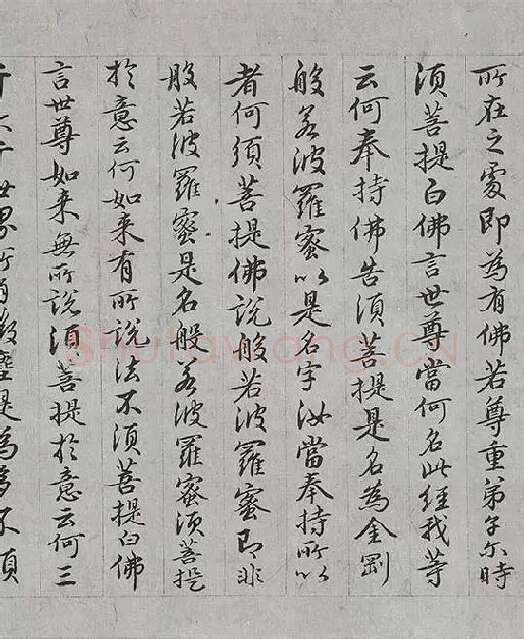 所在之處即為有佛若尊重弟子尔時
須菩提白佛言世尊當何名此經我等
云何奉持佛告須菩提是名為金剛
般若波羅蜜以是名字汝當奉持所以
者何須菩提佛說般若波羅蜜即非
般若波羅蜜是名般若波羅蜜須菩提
於意云何如来有所說法不須菩提白佛
言世尊如来無所說須菩提於意云何三
千大千世界所有微塵是為多不須
Shufawang.CN